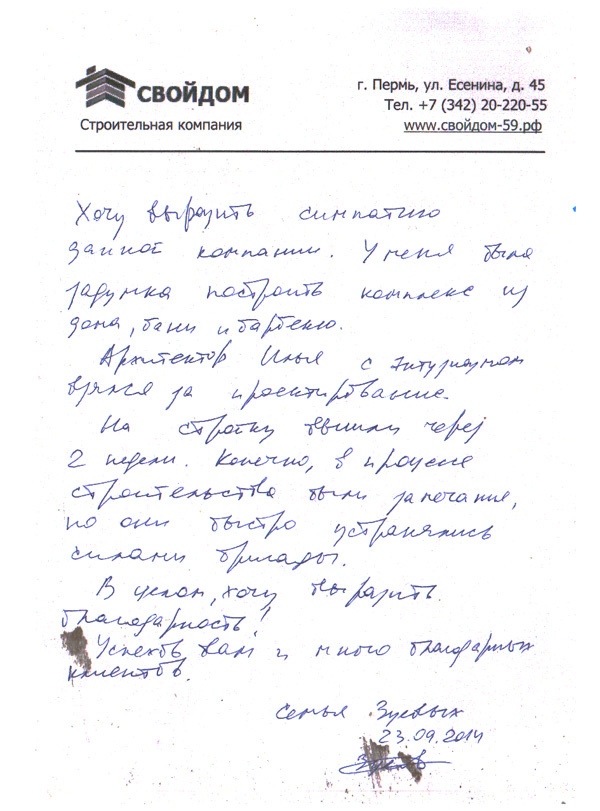 СВОЙДОМ
Строительная компания
г. Пермь, ул. Есенина, д. 45
Тел. +7 (342) 20-220-55
www.свойдом-59.рф
Хочу выразить симпатию
данной компании. У меня была
задумка построить комплекс из
дома, бани и барбекю.
Архитектор Илья с энтузиазмом
взялся за проектирование.
На стройку вышли через
2 недели. Конечно, в процессе
строительства были замечания,
но они быстро устранялись
силами бригады.
В целом, хочу выразить
благодарность!
Успехов вам и много благодарных
клиентов.
Семья Зуевых
23.09.2014